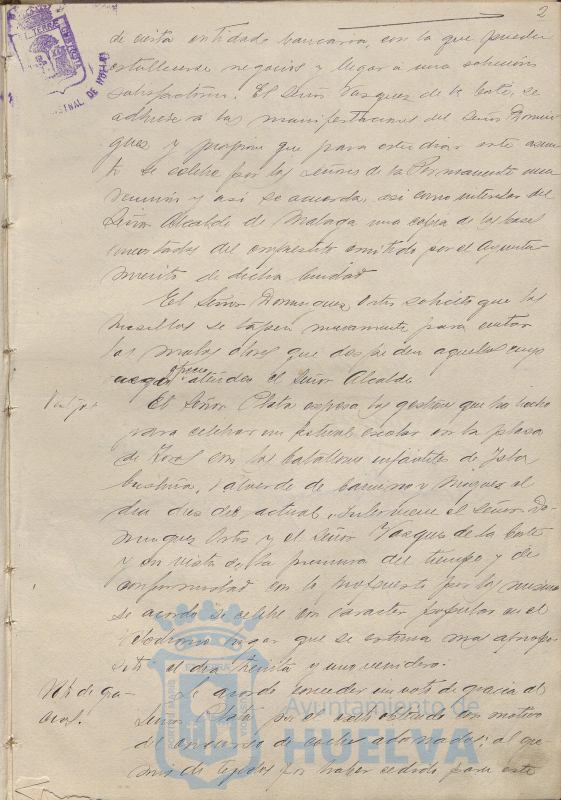 2
de cierta entidad bancaria, con la que pueden
establecerse negocios y llegar a una solución
satisfactoria. El Señor Vazquez de la Corte, se
adhiere a las manifestaciones del Señor Domin
guez y propone que para estudiar este asun
to se celebre por los señores de la Permanente una
reunión y así se acuerda, así como interesar del
Señor Alcalde de Malaga una copia de las bases
concertadas del emprestito emitido por el Ayunta-
miento de dicha Ciudad
El Señor Dominguez Ortiz solicita que los
se tapen nuevamente para evitar
los malos olores que despiden aquellas cuyo
ruego ofrece atender el Señor Alcalde
Festejos
El Señor Plata expone las gestiones que ha hecho
para celebrar un festival escolar en la plaza
de Toros con los batallones infantiles de Isla
Cristina, Valverde del Camino y al
dia dos del actual. Interviene el Señor Do-
minguez Ortiz y el Señor Vazquez de la Corte
y en vista de la premura del tiempo y de
conformidad con lo propuesto por los mismos
se acordó se celebre con caracter popular en el
Velodromo lugar que se estima mas apropo-
sito el dia treinta y uno venidero.
Voto de gra-
cias.
Se acordó conceder un voto de gracia al
Señor Plata por el exito obtenido con motivo
del concurso de coches adornados; al gre-
mio de tejidos por haber cedido para este
Ayuntamiento de
HUELVA